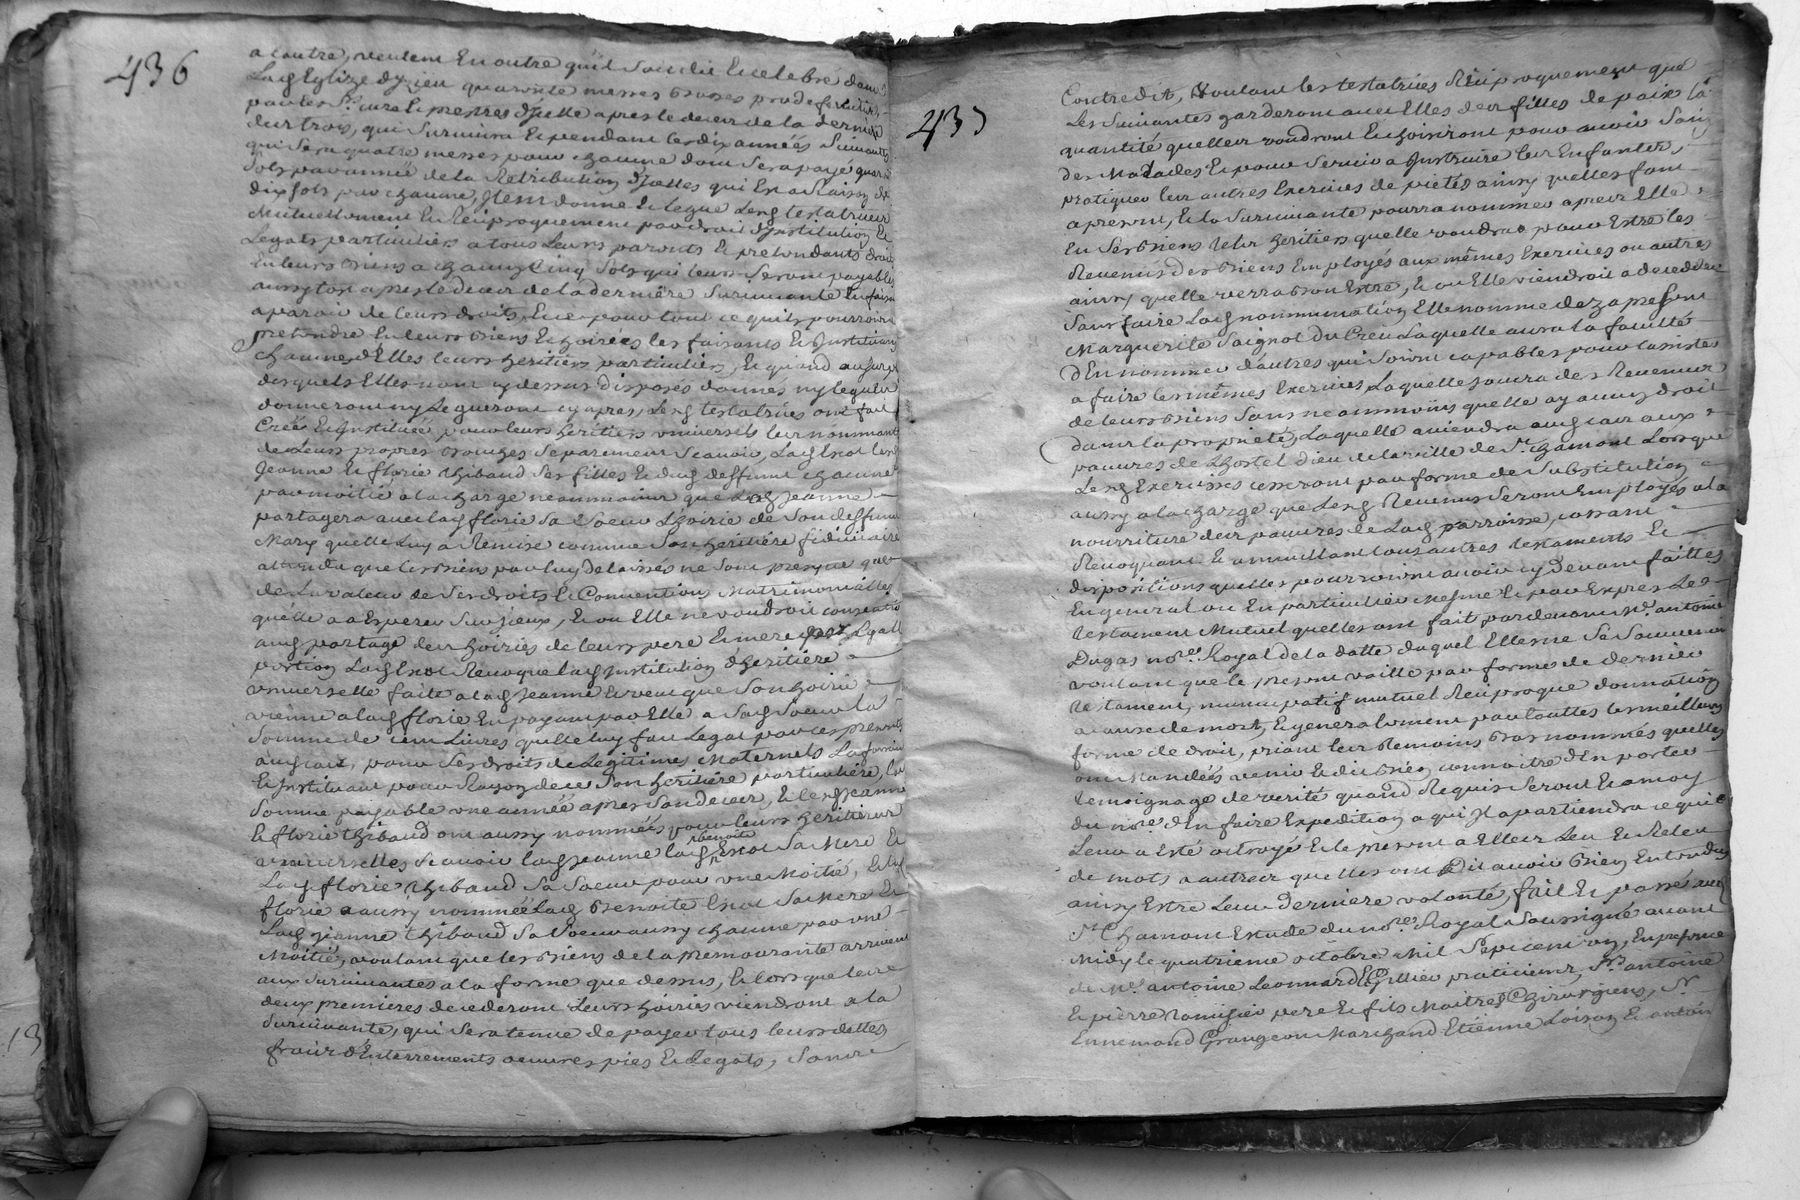 436
a lautre, veulent En outre quil soit dit Et celebré dans
Lad Eglize dyzieu quarante messes basses pro defunctis,
par les Sr. curé Et prestres dycelle apres le deces de la derniere
des trois, qui Survivra Et pendant les dix années Suivantes
qui Sera quatre messes pour chacune dont Sera payé quarante
Sols par année de la Retribution dycelles qui Est a Raison de
dix sols par chacune, Item donne Et legue Lesd testatrices
Mutuellement Et Reciproquement par droit dInstitution Et
Legats particuliers a tous Leurs parents Et pretendants droit
En leurs biens a chacun Cinq Sols qui leurs Seront payables
aussytost apres le deces de la derniere Survivante En faisant
aparoir de leurs droits, Et ce pour tout ce quils pourroient
pretendre En leurs biens Et hoiries les faisants Et Instituants
chacune dElles leurs heritiers particuliers, Et quand au surplus
desquels Elles nont cy dessus disposés donnés ny legués
donneront ny Legueront cy apres, Lesd testatrices ont fait
Créé Et Institué pour leurs heritiers universels les nommant
de Leurs propres bouches Separement Scavoir Lad Exot lesd
Jeanne Et florie thibaud Ses filles Et dud deffunt chacune
par moitié a la charge neanmoins que Lad Jeanne
partagera avec lad florie Sa Soeur Lhoirie de Son deffunt
Mary quelle Luy a Remise comme Son heritiere fidiciaire
attendu que les biens par luy delaissés ne Sont presque que
de La valeur de Ses droits Et Conventions Matrimonialles
quelle a a Esperer Sur Iceux, Et ou Elle ne voudroit consentir
aud partage des hoiries de leurs pere Et mere pour Legalle
portion Lad Exot Revoque lad Institution dheritiere
universelle faite a lad Jeanne Et veut que Son hoirie
vienne a lad florie En payant par Elle a Sad Soeur la
Somme de cent Livres quelle luy fait Legat par ces presentes
aud cas, pour Ses droits de Legitimes Maternels La faisant
Et Instituant pour Raison de ce Son heritiere particuliere, lad
Somme payable une année apres Son deces, Et lesd Jeanne
Et florie thibaud ont aussy nommées pour leurs heritieres
universelles Scavoir lad Jeanne lad benoite Exot Sa Mere Et
Lad florie thibaud Sa Soeur pour une Moitié, Et lad
florie a aussy nommée Lad Benoite Exot Sa Mere Et
Lad Jeanne thibaud Sa Soeur aussy chacune par une
Moitié, voulant que les biens de la premourante arrivent
aux Survivantes a la forme que dessus, Et lorsque lesd
deux premieres decederont Leurs hoiries viendront a la
Survivante, qui Sera tenue de payer tous leurs dettes
frais dEnterrements oeuvres pies Et legats, Sans
437
Contredit, Et voulant les testatrices Reciproquement que
Les Suivantes garderont avec Elles des filles de paix la
quantité quelles voudront Et choisiront pour avoir Soin
des Malades Et pour Servir a Instruire les Enfantes,
pratiquer les autres Exercices de pietés ainsy quelles font
a present, Et la Survivante pourra nommer apres Elle
En Ses biens telle heritiere quelle voudra pour Estre les
Revenus des biens Employés aux mêmes Exercices ou autres
ainsy quelle verra bon Estre, Et ou Elle viendroit a deceder
Sans faire Lad nommination Elle nomme dez a present
Marguerite Saignol du Creu Laquelle aura la faculté
dEn nommer dautres qui Soient capables pour lassister
a faire les mêmes Exercices, Laquelle jouira des Revenus
de leurs biens Sans neammoins quelle ay aucun droit
dans la proprieté, Laquelle aviendra aud cas aux
pauvres de Lhostel dieu de la ville de St. chamont Lorsque
Lesd Exercices cesseront par forme de Substitution
aussy a la charge que Lesd Revenus Seront Employés a la
nourriture des pauvres de Lad parroisse, cassant
Revoquant Et annullant tous autres testaments Et
dispositions quelles pourroient avoir cy devant faittes
En general ou En particulier Mesme Et par Expres Le
testament Mutuel quelles ont fait pardevant Me. antoine
Dugas nore. Royal de la datte duquel Elles ne Se Souvienent
voulant que le present vaille par forme de dernier
testament, nuncupatif mutuel Reciproque donnation
a cause de mort, Et generalement par touttes les meilleures
forme de droit, priant les temoins bas nommés quelles
ont Mandés venir Et dit bien connoitre dEn porter
temoignage de verité quand Requis Seront Et a moy
du nore. dEn faire Expedition a qui Il apartiendra ce qui
Leur a Esté octroyé Et le present a Elles Leu Et Releu
de mots a autres quelles ont dit avoir bien Entendus
ainsy Estre Leur derniere volonté, fait Et passé aud
St. Chamont Estude du nore. Royal Soussigné avant
Midy le quatrieme octobre Mil Septcent un, En presence
de Me. antoine Leonnard Et Gillier praticiens, Srs. antoine
Et pierre Ramijier pere Et fils Maitres Chirurgiens, Sr.
Ennemond Grangeon Marchand Etienne Loison Et antoine
13